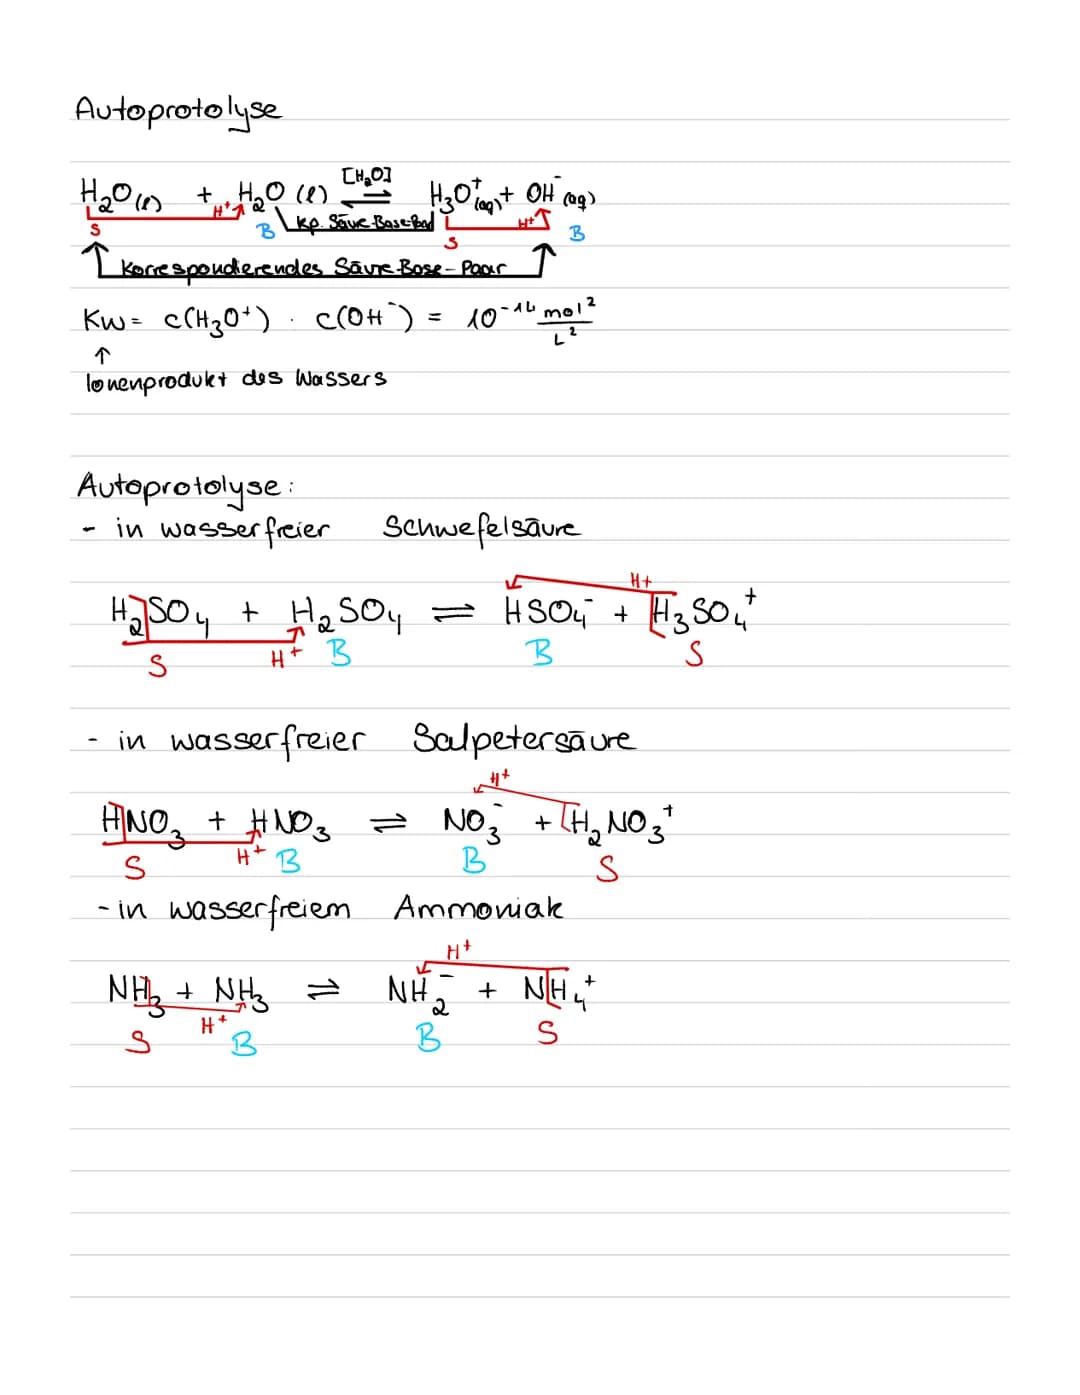 Autoprotolyse
[H₂O]
H₂O (l) + H₂O (l) ⇌ H₃O⁺(aq) + OH⁻(aq)
H⁺ H⁺
S B Kp. Säure-Base-Paar S B
Korrespondierendes Säure-Base-Paar
Kw = c(H₃O⁺) · c(OH⁻) = 10⁻¹⁴ mol²/L²
↑
Ionenprodukt des Wassers
Autoprotolyse:
- in wasserfreier Schwefelsäure
H+
H₂SO₄ + H₂SO₄ ⇌ HSO₄⁻ + H₃SO₄⁺
S H⁺ B B S
- in wasserfreier Salpetersäure
H⁺
HNO₃ + HNO₃ ⇌ NO₃⁻ + H₂NO₃⁺
S H⁺ B B S
- in wasserfreiem Ammoniak
H⁺
NH₃ + NH₃ ⇌ NH₂⁻ + NH₄⁺
S H⁺ B B S